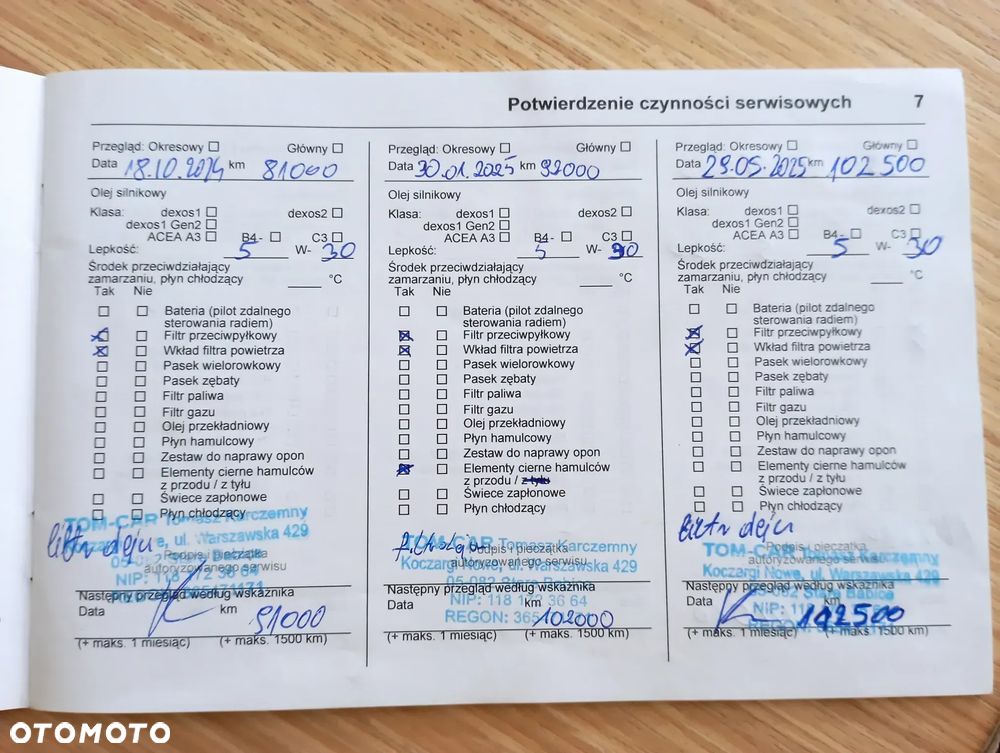 Potwierdzenie czynności serwisowych 7
Przegląd: Okresowy Główny
Data 18.10.2024 km 81000
Olej silnikowy
Klasa: dexos1 dexos2
dexos1 Gen2
ACEA A3 B4 - C3
Lepkość: 5 W- 30
Środek przeciwdziałający
zamarzaniu, płyn chłodzący °C
Tak Nie
Bateria (pilot zdalnego
sterowania radiem)
Filtr przeciwpyłkowy
Wkład filtra powietrza
Pasek wielorowkowy
Pasek zębaty
Filtr paliwa
Filtr gazu
Olej przekładniowy
Płyn hamulcowy
Zestaw do naprawy opon
Elementy cierne hamulców
z przodu / z tyłu
Świece zapłonowe
Płyn chłodzący
TOM-CAR Tomasz Karczemny
ul. Warszawska 429
Podpis i pieczątka
autoryzowanego serwisu
Następny przegląd według wskaźnika
Data km 91000
(+ maks. 1 miesiąc) (+ maks. 1500 km)
Przegląd: Okresowy Główny
Data 30.01.2025 km 92000
Olej silnikowy
Klasa: dexos1 dexos2
dexos1 Gen2
ACEA A3 B4 - C3
Lepkość: 5 W- 30
Środek przeciwdziałający
zamarzaniu, płyn chłodzący °C
Tak Nie
Bateria (pilot zdalnego
sterowania radiem)
Filtr przeciwpyłkowy
Wkład filtra powietrza
Pasek wielorowkowy
Pasek zębaty
Filtr paliwa
Filtr gazu
Olej przekładniowy
Płyn hamulcowy
Zestaw do naprawy opon
Elementy cierne hamulców
z przodu / z tyłu
Świece zapłonowe
Płyn chłodzący
TOM-CAR Tomasz Karczemny
Podpis i pieczątka
autoryzowanego serwisu
ul. Warszawska 429
05-082 Stare Babice
Następny przegląd według wskaźnika
Data km 102000
(+ maks. 1 miesiąc) (+ maks. 1500 km)
Przegląd: Okresowy Główny
Data 29.05.2025 km 102 500
Olej silnikowy
Klasa: dexos1 dexos2
dexos1 Gen2
ACEA A3 B4 - C3
Lepkość: 5 W- 30
Środek przeciwdziałający
zamarzaniu, płyn chłodzący °C
Tak Nie
Bateria (pilot zdalnego
sterowania radiem)
Filtr przeciwpyłkowy
Wkład filtra powietrza
Pasek wielorowkowy
Pasek zębaty
Filtr paliwa
Filtr gazu
Olej przekładniowy
Płyn hamulcowy
Zestaw do naprawy opon
Elementy cierne hamulców
z przodu / z tyłu
Świece zapłonowe
Płyn chłodzący
TOM-CAR Tomasz Karczemny
Podpis i pieczątka
autoryzowanego serwisu
Koczargi Nowe, ul. Warszawska 429
05-082 Stare Babice
Następny przegląd według wskaźnika
Data km 112500
(+ maks. 1 miesiąc) (+ maks. 1500 km)
OTOMOTO